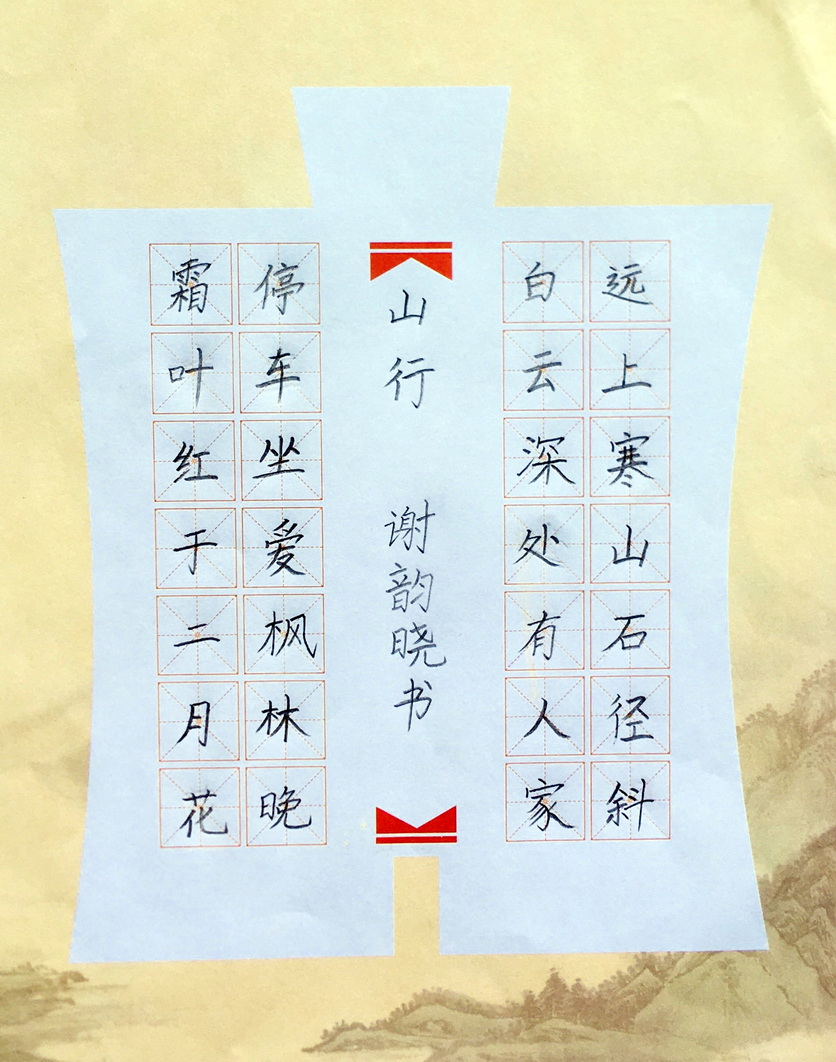 远上寒山石径斜
白云深处有人家
山行 谢韵晓书
停车坐爱枫林晚
霜叶红于二月花